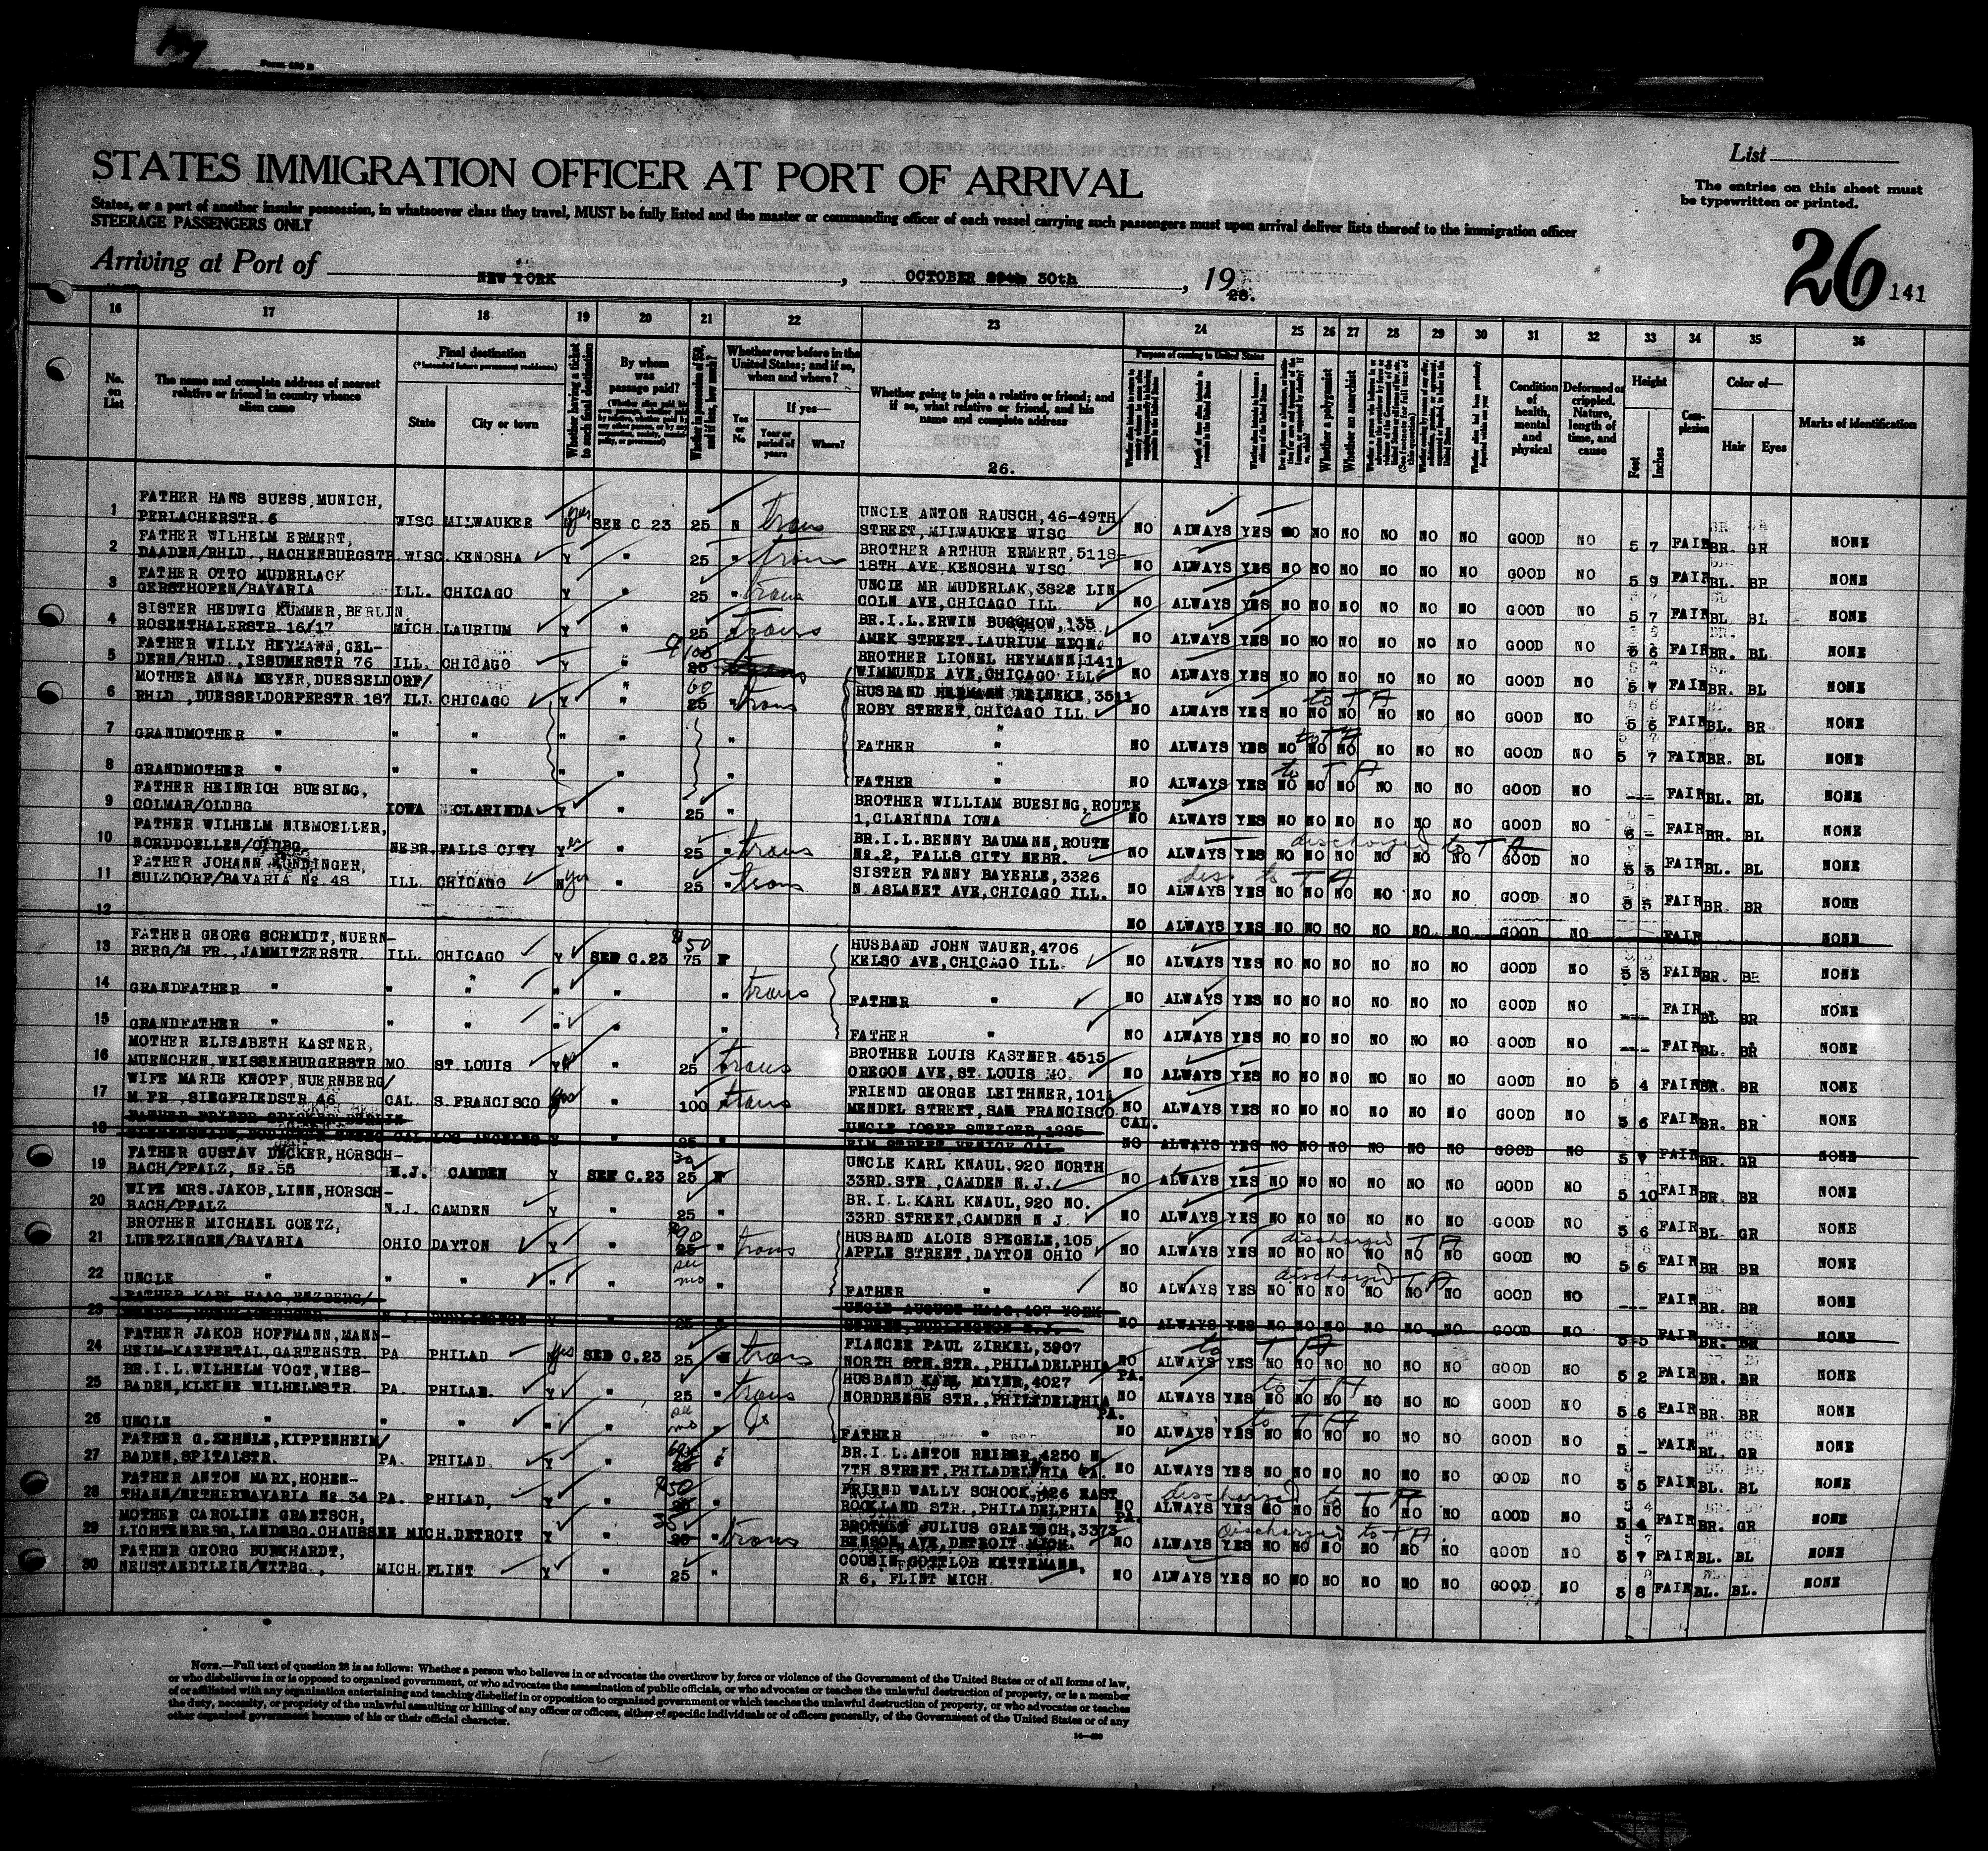 Form 630 B
STATES IMMIGRATION OFFICER AT PORT OF ARRIVAL
States, or a part of another insular possession, in whatsoever class they travel, MUST be fully listed and the master or commanding officer of each vessel carrying such passengers must upon arrival deliver lists thereof to the immigration officer
STEERAGE PASSENGERS ONLY
List
The entries on this sheet must
be typewritten or printed.
Arriving at Port of NEW YORK, OCTOBER 30th, 19 28.
26 141
16 17 18 19 20 21 22 23 24 25 26 27 28 29 30 31 32 33 34 35 36
No. on List
The name and complete address of nearest relative or friend in country whence alien came
Final destination
(* Intended future permanent residence)
State
City or town
Whether having a ticket to such final destination
By whom was passage paid?
Whether in possession of $50, and if less, how much?
Whether ever before in the United States; and if so, when and where?
Yes or No
If yes—
Year or period of years
Where?
Whether going to join a relative or friend; and if so, what relative or friend, and his name and complete address
26.
Purpose of coming to United States
Whether a polygamist
Whether an anarchist
Condition of health, mental and physical
Deformed or crippled. Nature, length of time, and cause
Height
Feet
Inches
Complexion
Color of—
Hair
Eyes
Marks of identification
1 FATHER HANS SUESS, MUNICH, UNCLE ANTON RAUSCH, 46-49TH
PERLACHERSTR. 6 WISC MILWAUKEE yes SEE C 23 25 N trans STREET, MILWAUKEE WISC NO ALWAYS YES NO NO NO NO NO NO GOOD NO 5 7 FAIR BR. GR NONE
2 FATHER WILHELM ERMERT, BROTHER ARTHUR ERMERT, 5118-
DAADEN/RHLD., HACHENBURGSTR. WISC. KENOSHA Y " 25 " trans 18TH AVE KENOSHA WISC. NO ALWAYS YES NO NO NO NO NO NO GOOD NO 5 9 FAIR BL. BR NONE
3 FATHER OTTO MUDERLACK UNCLE MR MUDERLAK, 3822 LIN-
GERSTHOFEN/BAVARIA ILL. CHICAGO Y " 25 " trans COLN AVE, CHICAGO ILL. NO ALWAYS YES NO NO NO NO NO NO GOOD NO 5 7 FAIR BL BL NONE
4 SISTER HEDWIG KUMMER, BERLIN BR.I.L. ERWIN 135
ROSENTHALERSTR. 16/17 MICH LAURIUM Y " 25 " trans AMEK STREET. LAURIUM MICH. NO ALWAYS YES NO NO NO NO NO NO GOOD NO 5 6 FAIR BR. BL NONE
5 FATHER WILLY HEYMANN, GEL- BROTHER LIONEL HEYMANN, 1411
DERN/RHLD., ISSUMERSTR 76 ILL. CHICAGO Y " 100 25 WIMMUNDE AVE, CHICAGO ILL NO ALWAYS YES NO NO NO NO NO NO GOOD NO 5 7 FAIR BR. BL NONE
6 MOTHER ANNA MEYER, DUESSELDORF/ HUSBAND HERMANN REINEKE, 3511
RHLD., DUESSELDORFERSTR 187 ILL CHICAGO Y " 60 25 " trans ROBY STREET, CHICAGO ILL. to T A NO ALWAYS YES NO NO NO NO NO NO GOOD NO 5 6 FAIR BL. BR NONE
7 GRANDMOTHER " " " " " " FATHER " to T A NO ALWAYS YES NO NO NO NO NO NO GOOD NO 5 7 FAIR BR. BL NONE
8 GRANDMOTHER " " " " " " FATHER " to T A NO ALWAYS YES NO NO NO NO NO NO GOOD NO --- FAIR BL. BL NONE
9 FATHER HEINRICH BUESING, BROTHER WILLIAM BUESING, ROUTE
COLMAR/OLDBG IOWA CLARINDA Y " 25 " 1, CLARINDA IOWA NO ALWAYS YES NO NO NO NO NO NO GOOD NO 6 - FAIR BR. BL NONE
10 FATHER WILHELM NIEMOELLER, BR.I.L. BENNY BAUMANN, ROUTE
NORDDOELLEN/OLDBG. NEBR. FALLS CITY Yes " 25 " trans No. 2, FALLS CITY NEBR. discharged to T A NO ALWAYS YES NO NO NO NO NO NO GOOD NO 5 5 FAIR BL. BL NONE
11 FATHER JOHANN KUNDINGER, SISTER FANNY BAYERLE, 3326
SULZDORF/BAVARIA No. 48 ILL CHICAGO yes " 25 " trans N. ASLANET AVE, CHICAGO ILL. dis. to T A NO ALWAYS YES NO NO NO NO NO NO GOOD NO 5 5 FAIR BR. BR NONE
12 NO ALWAYS YES NO NO NO NO NO NO GOOD NO FAIR NONE
13 FATHER GEORG SCHMIDT, NUERN- HUSBAND JOHN WAUER, 4706
BERG/M FR., JAMMITZERSTR. ILL. CHICAGO Y SEE C.23 50 75 N KELSO AVE, CHICAGO ILL. NO ALWAYS YES NO NO NO NO NO NO GOOD NO 5 5 FAIR BR. BR NONE
14 GRANDFATHER " " " " " " trans FATHER " NO ALWAYS YES NO NO NO NO NO NO GOOD NO --- FAIR BL BR NONE
15 GRANDFATHER " " " " " " FATHER " NO ALWAYS YES NO NO NO NO NO NO GOOD NO --- FAIR BL. BR NONE
16 MOTHER ELISABETH KASTNER, BROTHER LOUIS KASTNER 4515
MUENCHEN, WEISSENBURGERSTR MO ST. LOUIS Yes " 25 trans OREGON AVE, ST. LOUIS MO. NO ALWAYS YES NO NO NO NO NO NO GOOD NO 5 4 FAIR BR. BR NONE
17 WIFE MARIE KNOPF, NUERNBERG/ FRIEND GEORGE LEITHNER, 1011
M.FR., SIEGFRIEDSTR 46 CAL. S. FRANCISCO yes " 100 trans MENDEL STREET, SAN FRANCISCO CAL. NO ALWAYS YES NO NO NO NO NO NO GOOD NO 5 6 FAIR BR. BR NONE
18 UNCLE JOSEF STEIGER, 1225
CAL LOS ANGELES Y " 25 ELM STREET VENICE CAL NO ALWAYS YES NO NO NO NO NO NO GOOD NO 5 7 FAIR BR. GR NONE
19 FATHER GUSTAV DECKER, HORSCH- UNCLE KARL KNAUL, 920 NORTH
BACH/PFALZ, No. 55 N.J. CAMDEN Y SEE C.23 30 25 N 33RD. STR., CAMDEN N.J. NO ALWAYS YES NO NO NO NO NO NO GOOD NO 5 10 FAIR BR. BR NONE
20 WIFE MRS. JAKOB, LINN, HORSCH- BR.I.L. KARL KNAUL, 920 NO.
BACH/PFALZ N.J. CAMDEN Y " 25 33RD STREET, CAMDEN N J NO ALWAYS YES NO NO NO NO NO NO GOOD NO 5 6 FAIR BL GR NONE
21 BROTHER MICHAEL GOETZ, HUSBAND ALOIS SPEGELE, 105
LUETZINGEN/BAVARIA OHIO DAYTON Y " 90 25 " trans APPLE STREET, DAYTON OHIO discharged T A NO ALWAYS YES NO NO NO NO NO NO GOOD NO 5 6 FAIR BR BR NONE
22 UNCLE " " " " " " FATHER " discharged T A NO ALWAYS YES NO NO NO NO NO NO GOOD NO --- FAIR BR. BR NONE
23 FATHER KARL HAAG, ENZBERG/ UNCLE AUGUST HAAG, 407 YORK
N.J. BURLINGTON Y 25 STREET, BURLINGTON N.J. NO ALWAYS YES NO NO NO NO NO NO GOOD NO 5 5 FAIR BR. BR NONE
24 FATHER JAKOB HOFFMANN, MANN- FIANCEE PAUL ZIRKEL, 3907
HEIM-KAEFERTAL, GARTENSTR. PA PHILAD yes SEE C.23 25 N trans NORTH 8TH. STR., PHILADELPHIA PA. to T A NO ALWAYS YES NO NO NO NO NO NO GOOD NO 5 2 FAIR BR. BR NONE
25 BR.I.L. WILHELM VOGT, WIES- HUSBAND KARL MAYER, 4027
BADEN, KLEINE WILHELMSTR. PA. PHILAD. Y " 25 " trans NORDREESE STR., PHILADELPHIA PA. to T A NO ALWAYS YES NO NO NO NO NO NO GOOD NO 5 6 FAIR BR. BR NONE
26 UNCLE " " " " " " FATHER " to T A NO ALWAYS YES NO NO NO NO NO NO GOOD NO 5 - FAIR BL. GR NONE
27 FATHER G. ZEHNLE, KIPPENHEIM/ BR.I.L. ANTON REIBER, 4250 N.
BADEN, SPITALSTR. PA. PHILAD. Y " 25 " 7TH STREET, PHILADELPHIA PA. NO ALWAYS YES NO NO NO NO NO NO GOOD NO 5 5 FAIR BL. BL NONE
28 FATHER ANTON MARX, HOHEN- FRIEND WALLY SCHOCK, 426 EAST
THANN/NETHERBAVARIA No. 34 PA. PHILAD, Y " 50 25 ROCKLAND STR., PHILADELPHIA PA. discharged to T A NO ALWAYS YES NO NO NO NO NO NO GOOD NO 5 4 FAIR BR. GR NONE
29 MOTHER CAROLINE GRAETSCH, BROTHER JULIUS GRAETSCH, 3373
LICHTENBERG, LANDSBG. CHAUSSEE MICH. DETROIT Y " " trans BENSON AVE, DETROIT MICH. Discharged to T A NO ALWAYS YES NO NO NO NO NO NO GOOD NO 5 7 FAIR BL. BL NONE
30 FATHER GEORG BURKHARDT, COUSIN GOTTLOB KETTEMANN,
NEUSTAEDTLEIN/WTTBG., MICH. FLINT Y " 25 " R 6, FLINT MICH NO ALWAYS YES NO NO NO NO NO NO GOOD NO 5 8 FAIR BL. BL. NONE
NOTE.—Full text of question 28 is as follows: Whether a person who believes in or advocates the overthrow by force or violence of the Government of the United States or of all forms of law,
or who disbelieves in or is opposed to organized government, or who advocates the assassination of public officials, or who advocates or teaches the unlawful destruction of property, or is a member
of or affiliated with any organization entertaining and teaching disbelief in or opposition to organized government or which teaches the unlawful destruction of property, or who advocates or teaches
the duty, necessity, or propriety of the unlawful assaulting or killing of any officer or officers, either of specific individuals or of officers generally, of the Government of the United States or of any
other organized government because of his or their official character.